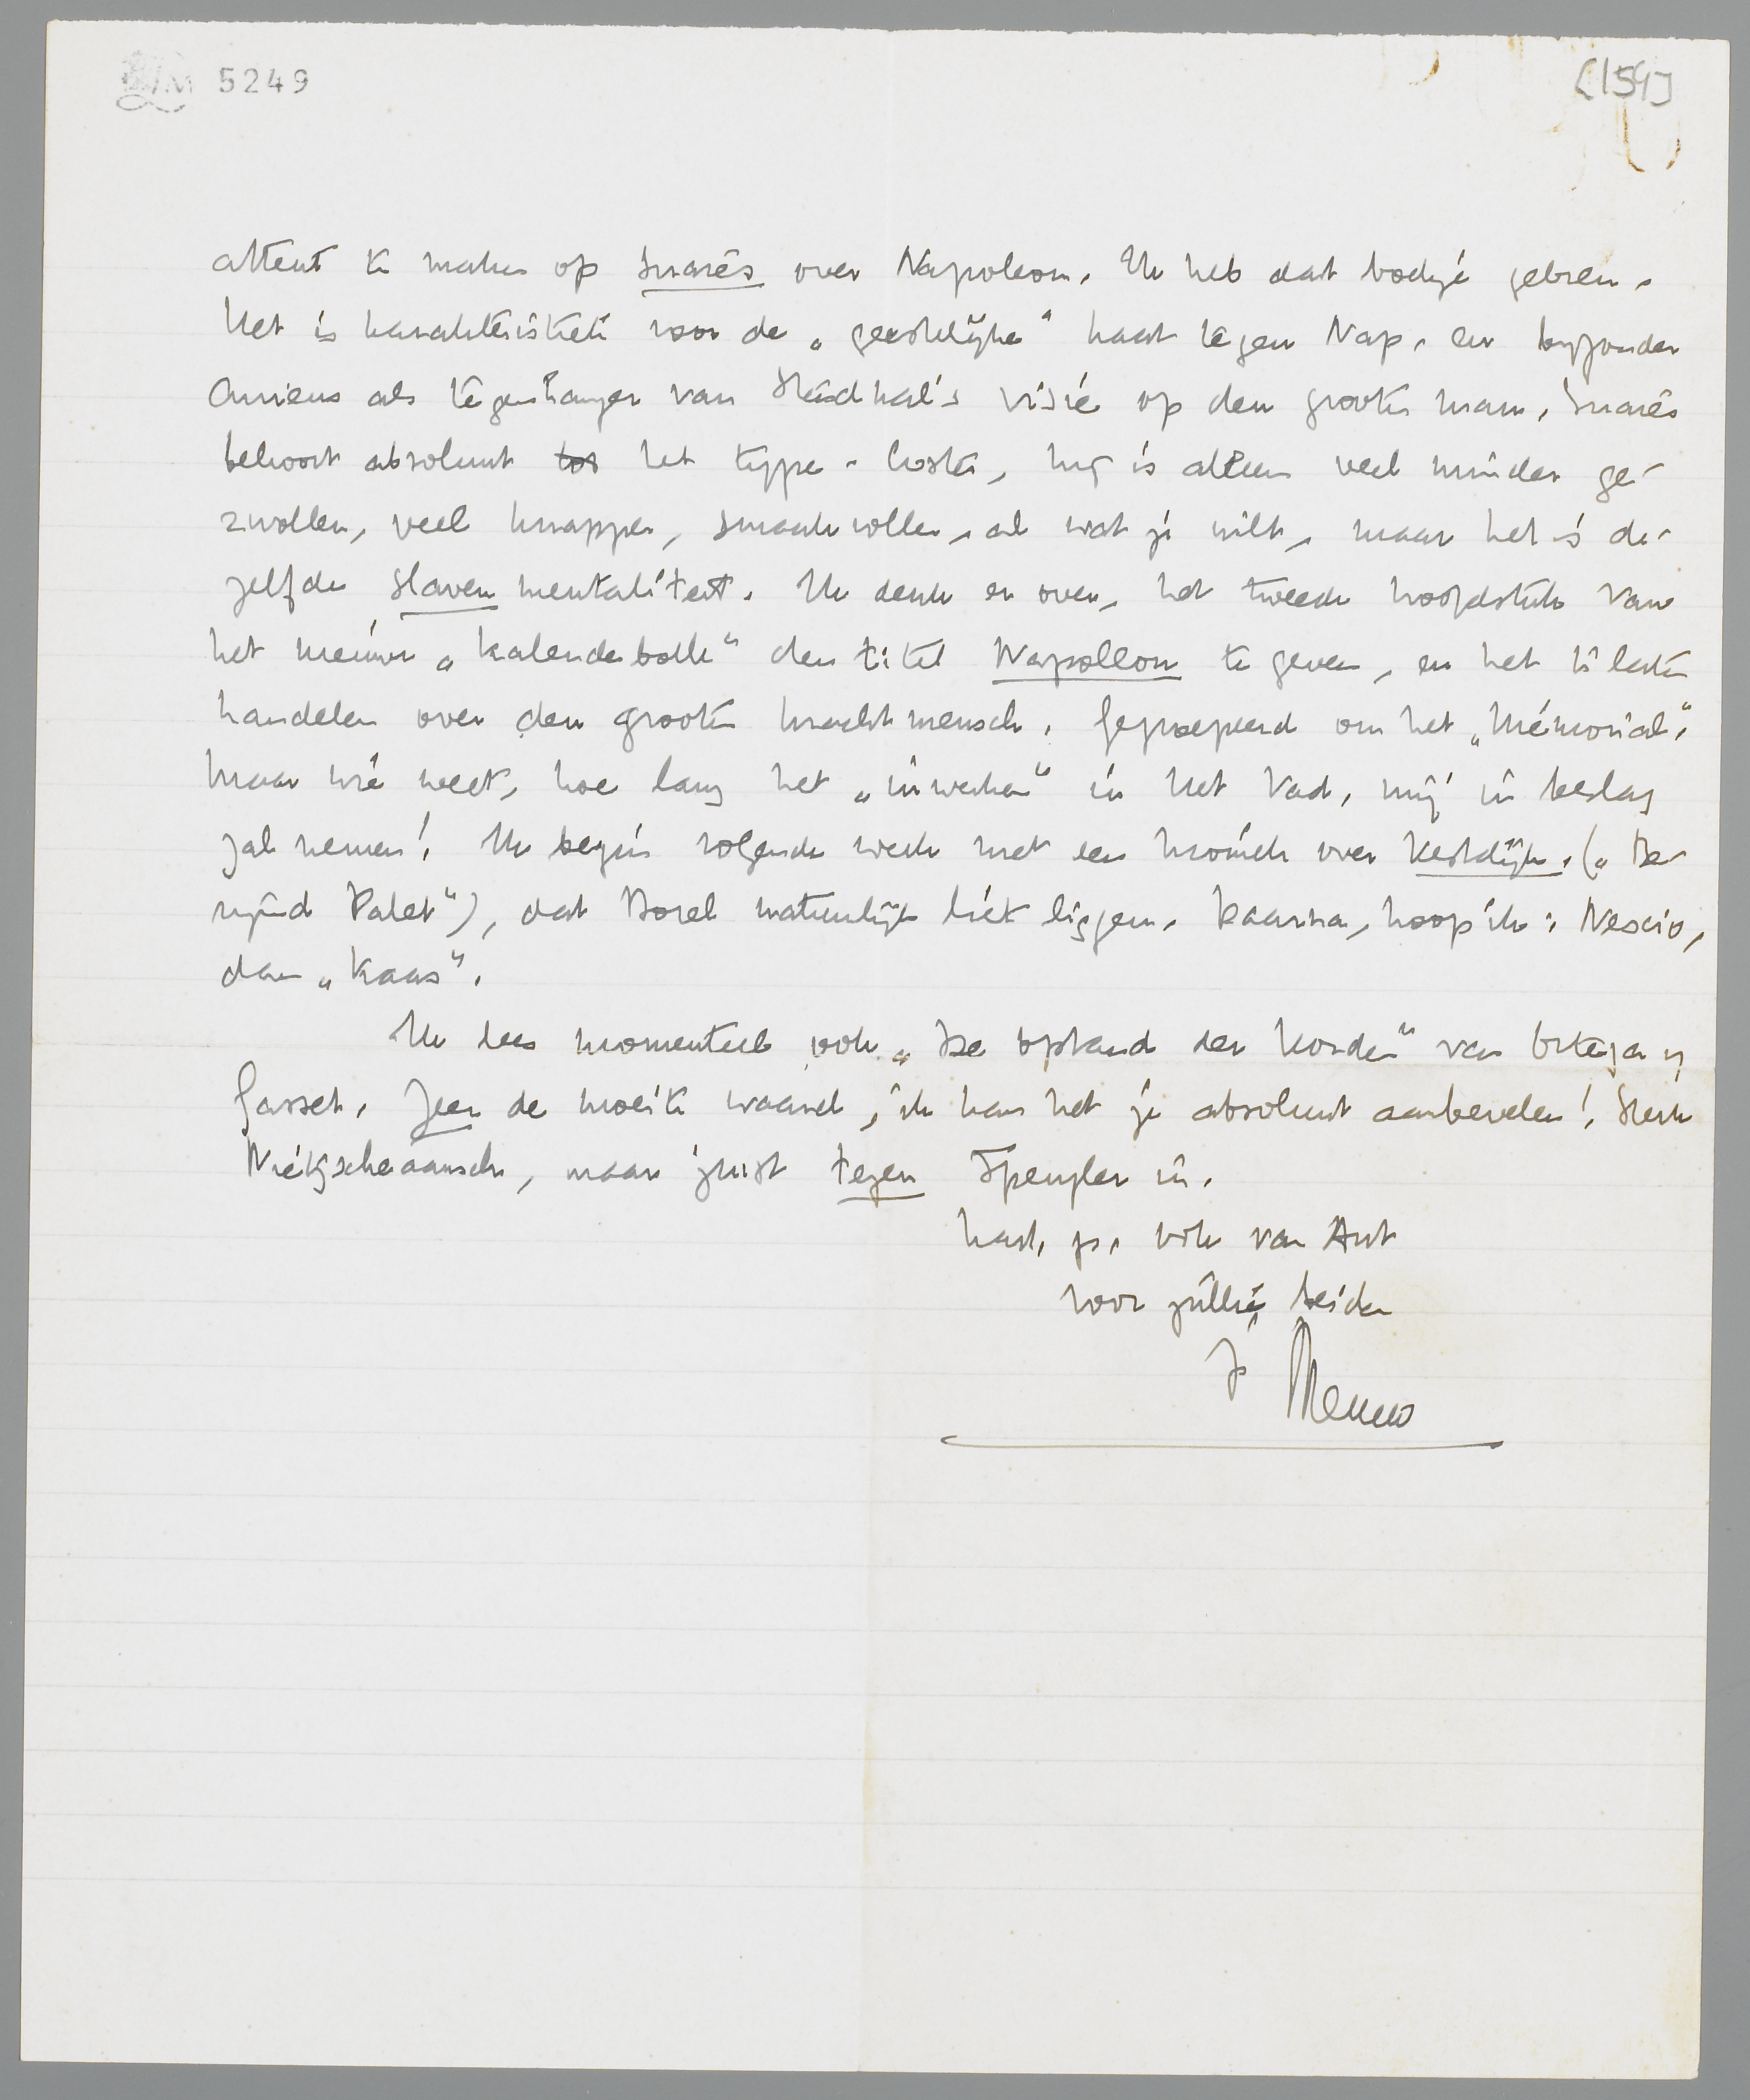 LM 5249
[159]
attent te maken op Suarès over Napoleon. Ik heb dat boekje gelezen.
Het is karakteristiek voor de „geestelijke” haat tegen Nap. en bijzonder
curieus als tegenhanger van Stendhal's visie op den grooten man. Suarès
behoort absoluut tot het type-Coster, hij is alleen veel minder ge-
zwollen, veel knapper, smaakvoller, al wat je wilt, maar het is de-
zelfde slavenmentaliteit. Ik denk er over, het tweede hoofdstuk van
het nieuwe „kalenderboek” den titel Napoleon te geven, en het te laten
handelen over den grooten machtmensch. Gegroepeerd om het „Mémorial”.
Maar wie weet, hoe lang het „inwerken” in Het Vad. mij in beslag
zal nemen! Ik begin volgende week met een kroniek over Vestdijk. („Be-
rijmd Palet”), dat Borel natuurlijk liet liggen. Daarna, hoop ik: Nescio,
dan „Kaas”.
Ik lees momenteel ook „De Opstand der Horden” van Ortega y
Gasset. Zeer de moeite waard, ik kan het je absoluut aanbevelen! Sterk
Nietzscheaansch, maar juist tegen Spengler in.
hart. gr. ook van Ant
voor jullie beiden
je Menno